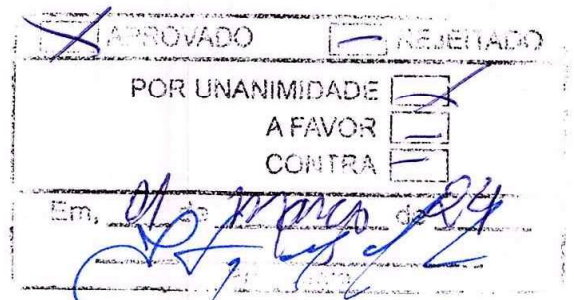 APROVADO REJEITADO
POR UNANIMIDADE
A FAVOR
CONTRA
Em, 01 de março de 24